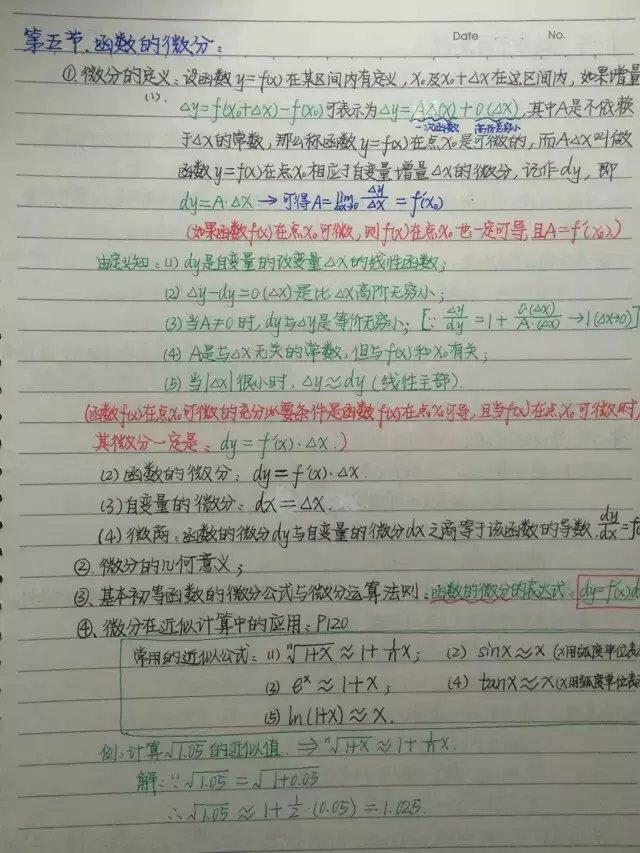 Date . . No.
第五节.函数的微分:
①.微分的定义:设函数y=f(x)在某区间内有定义,x₀及x₀+△x在这区间内,如果增量
(1). △y=f(x₀+△x)-f(x₀)可表示为△y=A△(x)+o(△x),其中A是不依赖
一次函数 高阶无穷小
于△x的常数,那么称函数y=f(x)在点x₀是可微的,而A·△x叫做
函数y=f(x)在点x₀相应于自变量增量△x的微分,记作dy,即
dy=A·△x→可得A=lim △x→0 △y/△x=f'(x₀)
(如果函数f(x)在点x₀可微,则f(x)在点x₀也一定可导,且A=f'(x₀))
由定义知:(1) dy是自变量的改变量△x的线性函数;
(2) △y-dy=o(△x)是比△x高阶无穷小;
(3)当A≠0时,dy与△y是等价无穷小;[∵ △y/dy=1+o(△x)/A·(△x)→1(△x→0)]
(4) A是与△x无关的常数,但与f(x)和x₀有关;
(5) 当|△x|很小时,△y≈dy(线性主部).
(函数f(x)在点x₀可微的充分必要条件是函数f(x)在点x₀可导,且当f(x)在点x₀可微时,
其微分一定是:dy=f'(x)·△x.)
(2)函数的微分:dy=f'(x)·△x.
(3)自变量的微分:dx=△x.
(4)微商:函数的微分dy与自变量的微分dx之商等于该函数的导数.dy/dx=f
②.微分的几何意义;
③.基本初等函数的微分公式与微分运算法则:函数的微分的表达式:dy=f'(x)d
④.微分在近似计算中的应用:P120
常用的近似公式:(1) ⁿ√1+x≈1+1/n x; (2) sinx≈x(x用弧度单位表
(3) eˣ≈1+x; (4) tanx≈x(x用弧度单位表
(5) ln(1+x)≈x.
例:计算√1.05的近似值.⇒ⁿ√1+x≈1+1/n x.
解:∵√1.05=√1+0.05
∴√1.05≈1+1/2·(0.05)=1.025.